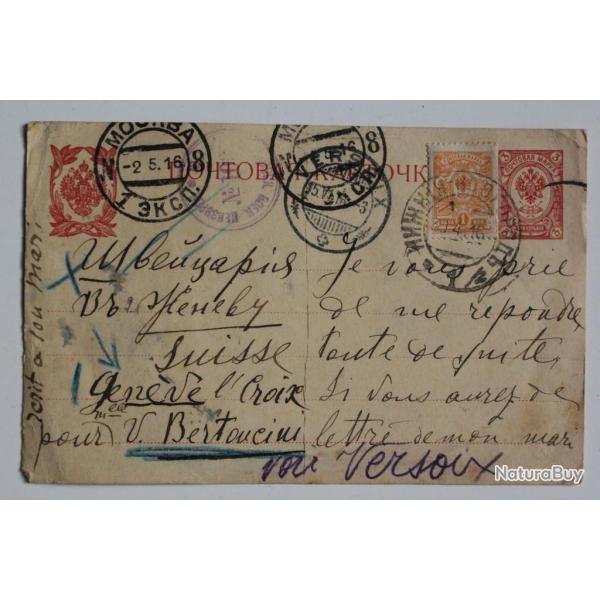 МОСКВА
-2.5.16
8
1 ЭКСП.
ПОЧТОВАЯ КАРТОЧКА
VERSOIX
8
1
3
Швейцарія
Въ Женеву
Suisse
Genève l'Croix
pour Mee V. Bertoncini
voir Versoix
Je vous prie
de me repondre
toute de suite,
Si vous aurez de
lettre de mon mari
ecrit a son mari
NaturaBuy